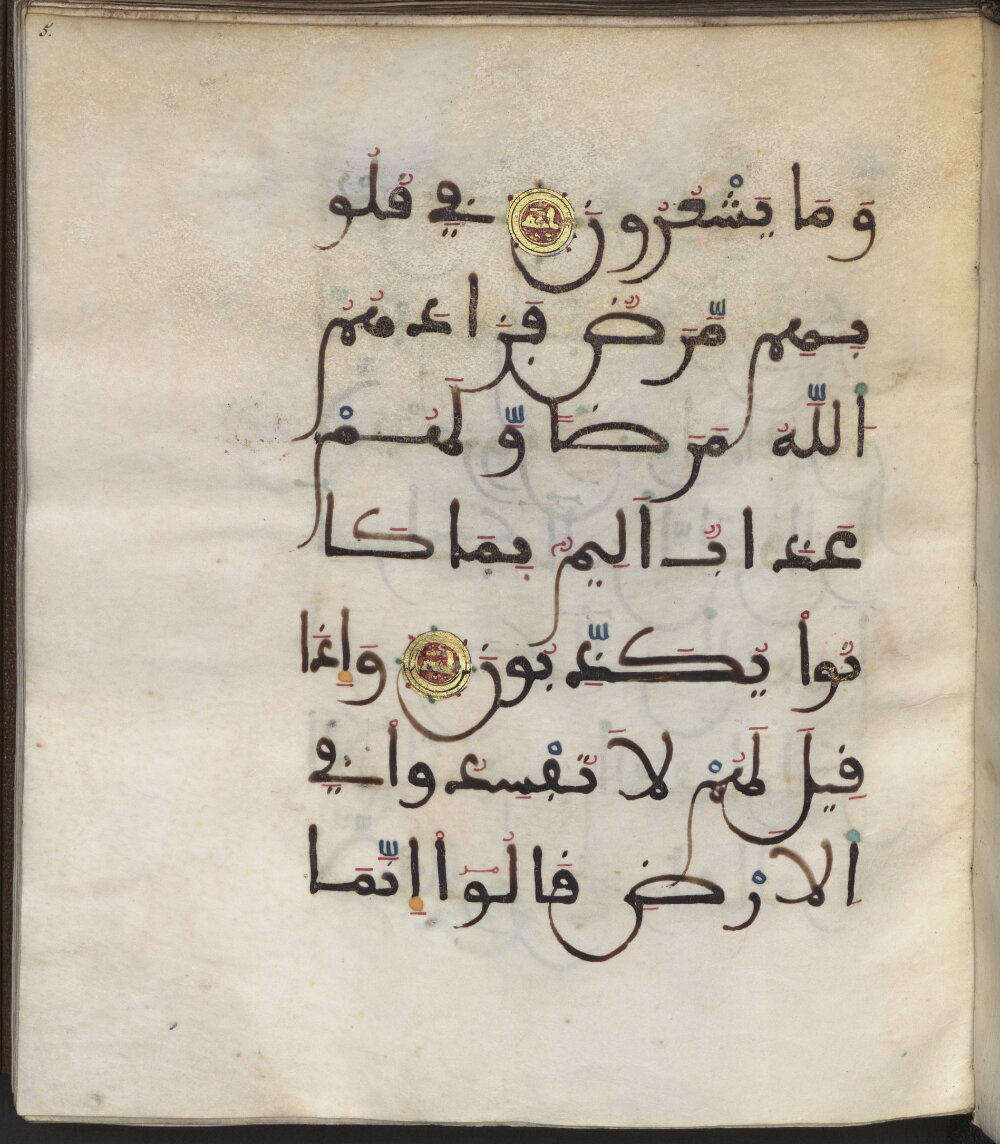 5.
وَمَا يَشْعُرُونَ فِي قُلُو
بِهِم مَّرَضٌ فَزَادَهُمُ
اللَّهُ مَرَضًا وَّلَهُمْ
عَذَابٌ أَلِيمٌ بِمَا كَا
نُوا يُكَذِّبُونَ وَإِذَا
قِيلَ لَهُمْ لَا تُفْسِدُوا فِي
الَارْضِ قَالُوا إِنَّمَا